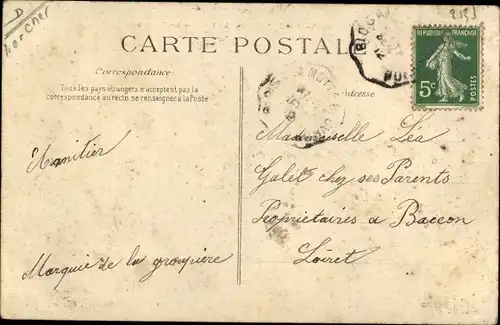 D
Loir et Cher
213
CARTE POSTALE
RÉPUBLIQUE FRANÇAISE
5c
POSTES
Correspondance
Tous les pays étrangers n'acceptent pas la
correspondance au recto. se renseigner à la Poste
Adresse
Mademoiselle Léa
Galet chez ses Parents
Propriétaires a Baccon
Loiret
Manitier
Marquie de la groupière